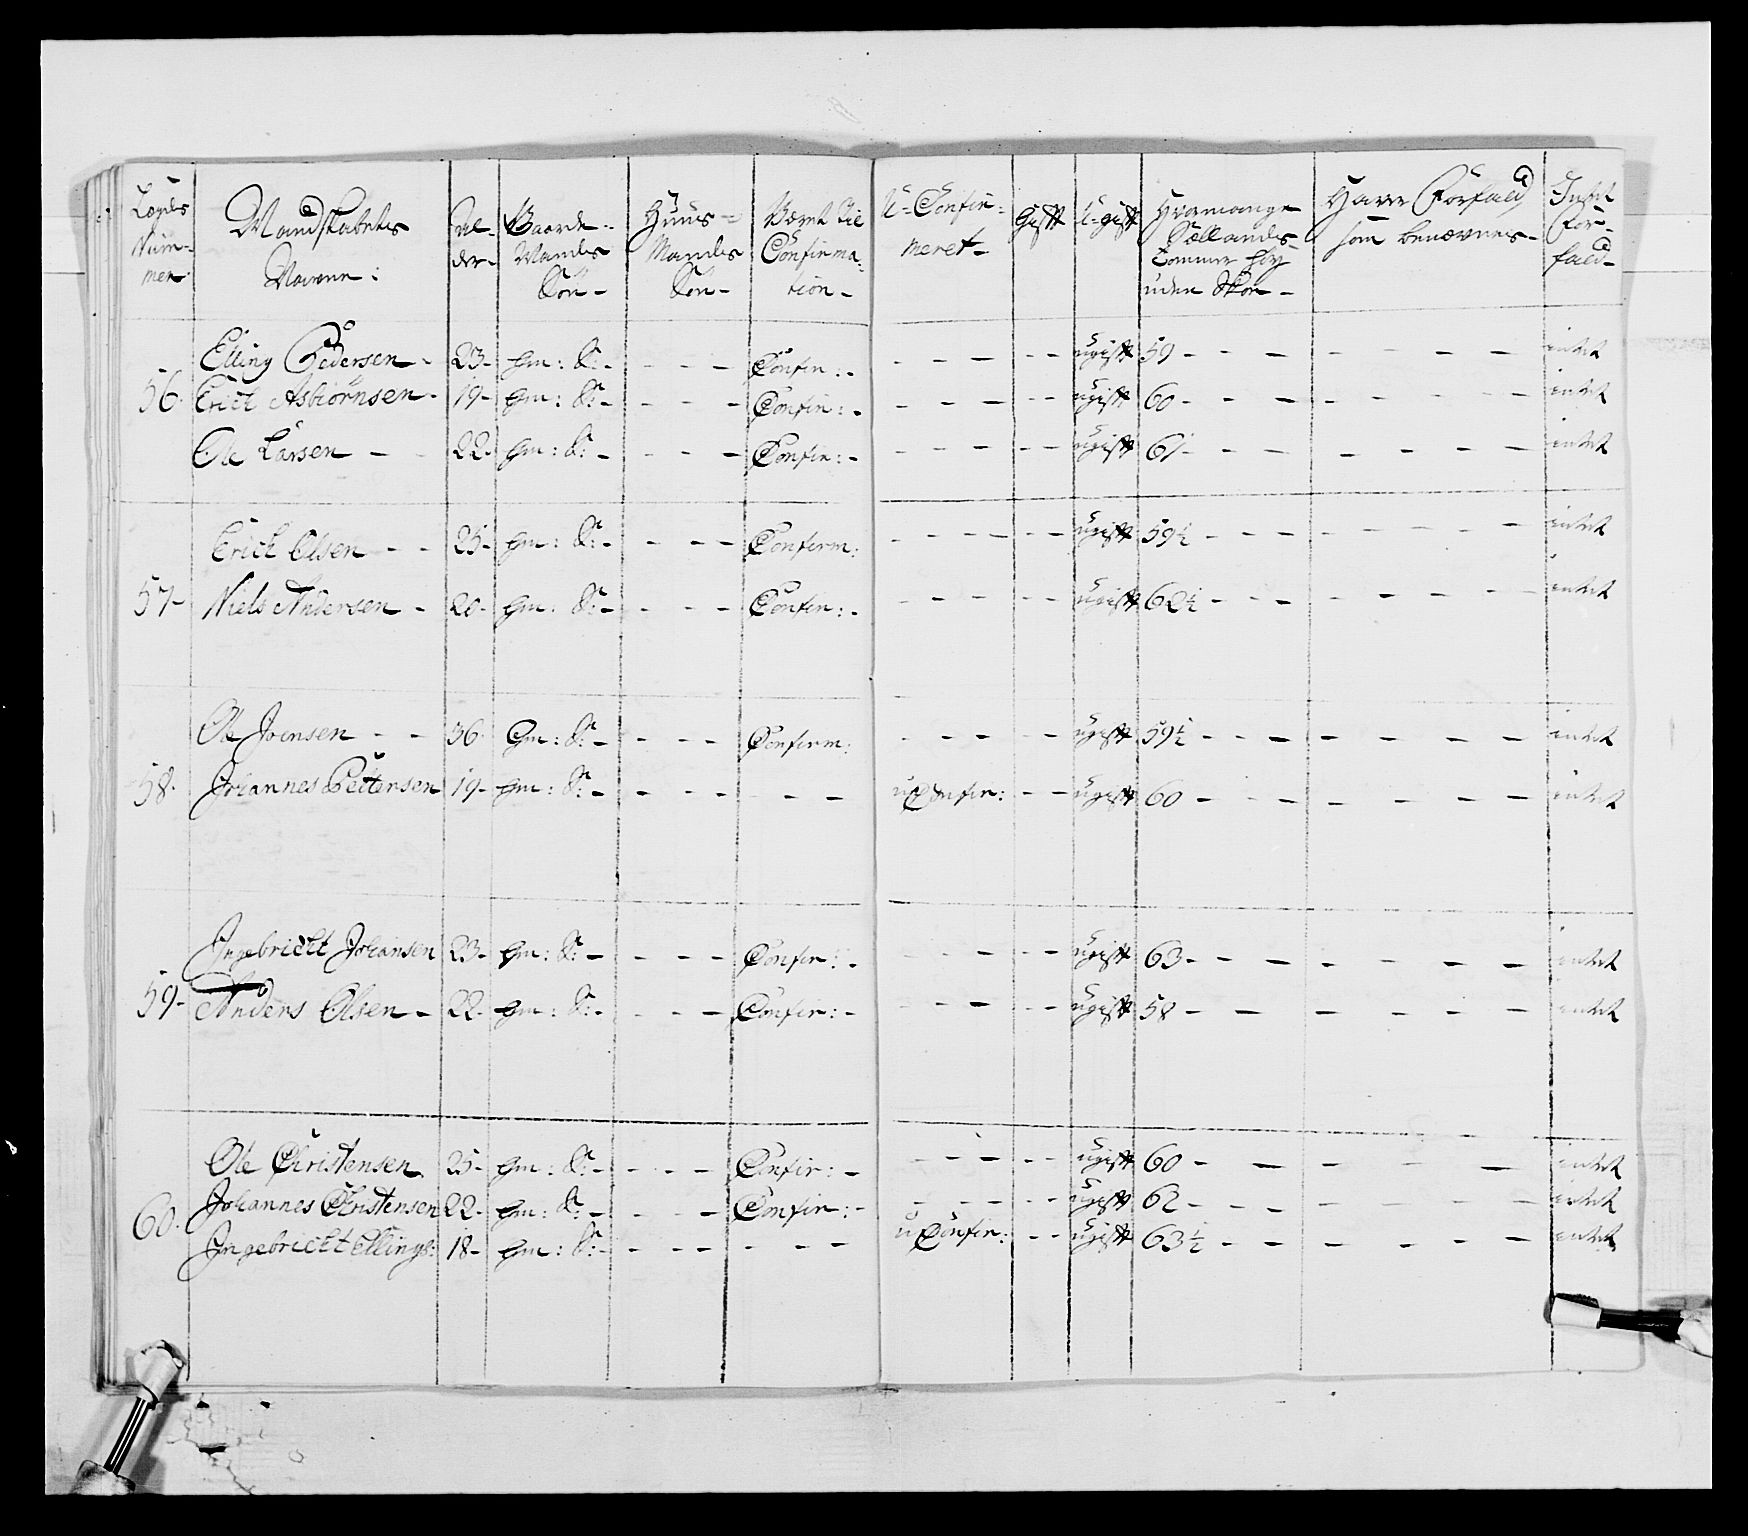 Lægds Num- mer. | Mandskabetes Navne: | Al- der- | Baarde- Mands Søn- | Huus= Mands Søn- | Været til Confirma- tion- | U-Confir- meret- | Gift | U-gift | Hvormange Sællands Tommer høy uden Skoe- | Have Forfald som benævnes- | Intet For- fald-
Elling Pedersen - | 23- | gm: S:- | - - - | Confir:- | - - - | - - | ugift | 59 - - - | - - - - | intet
56. Erich Asbiørnsen- | 19- | gm: S:- | - - - | Confir:- | - - - | - - | ugift | 60 - - - | - - - - | intet
Ole Larsen - - | 22. | gm: S:- | - - - | Confir:- | - - - | - - | ugift | 61- - - | - - - - | intet
Erich Olsen - - | 25- | gm: S:- | - - - | Confirm: | - - - - | - - | ugift | 59½ - - - | - - - - | intet
57- Niels Andersen - | 20- | gm: S:- | - - - | Confir:- | - - - | - - | ugift | 62½ - - - | - - - - | intet
Ole Joensen - - | 36. | Gm: S:- | - - - | Confirm: | - - - | - - | ugift | 59½ - - - | - - - - | intet
58. Johannes Peitersen | 19- | gm: S:- | - - - | - - - | uConfir: | - - | ugift | 60 - - - | - - - - | intet
Ingebricht Johansen | 23- | gm: S:- | - - - | Confir:- | - - - | - - | ugift | 63- - - | - - - - | intet
59- Anders Olsen - | 22- | gm: S:- | - - - | Confir:- | - - - | - - | ugift | 58 - - - | - - - - | intet
Ole Christensen | 25- | gm: S:- | - - - | Confir:- | - - - | - - | ugift | 60 - - | - - - | intet
60. Johannes Christensen | 22- | gm: S:- | - - - | Confir:- | - - - | - - | ugift | 62 - - - | - - - - | intet
Ingebricht Ellings: | 18- | gm: S:- | - - - | - - - | uConfir: | - - | ugift | 63½ - - - | - - - - | intet